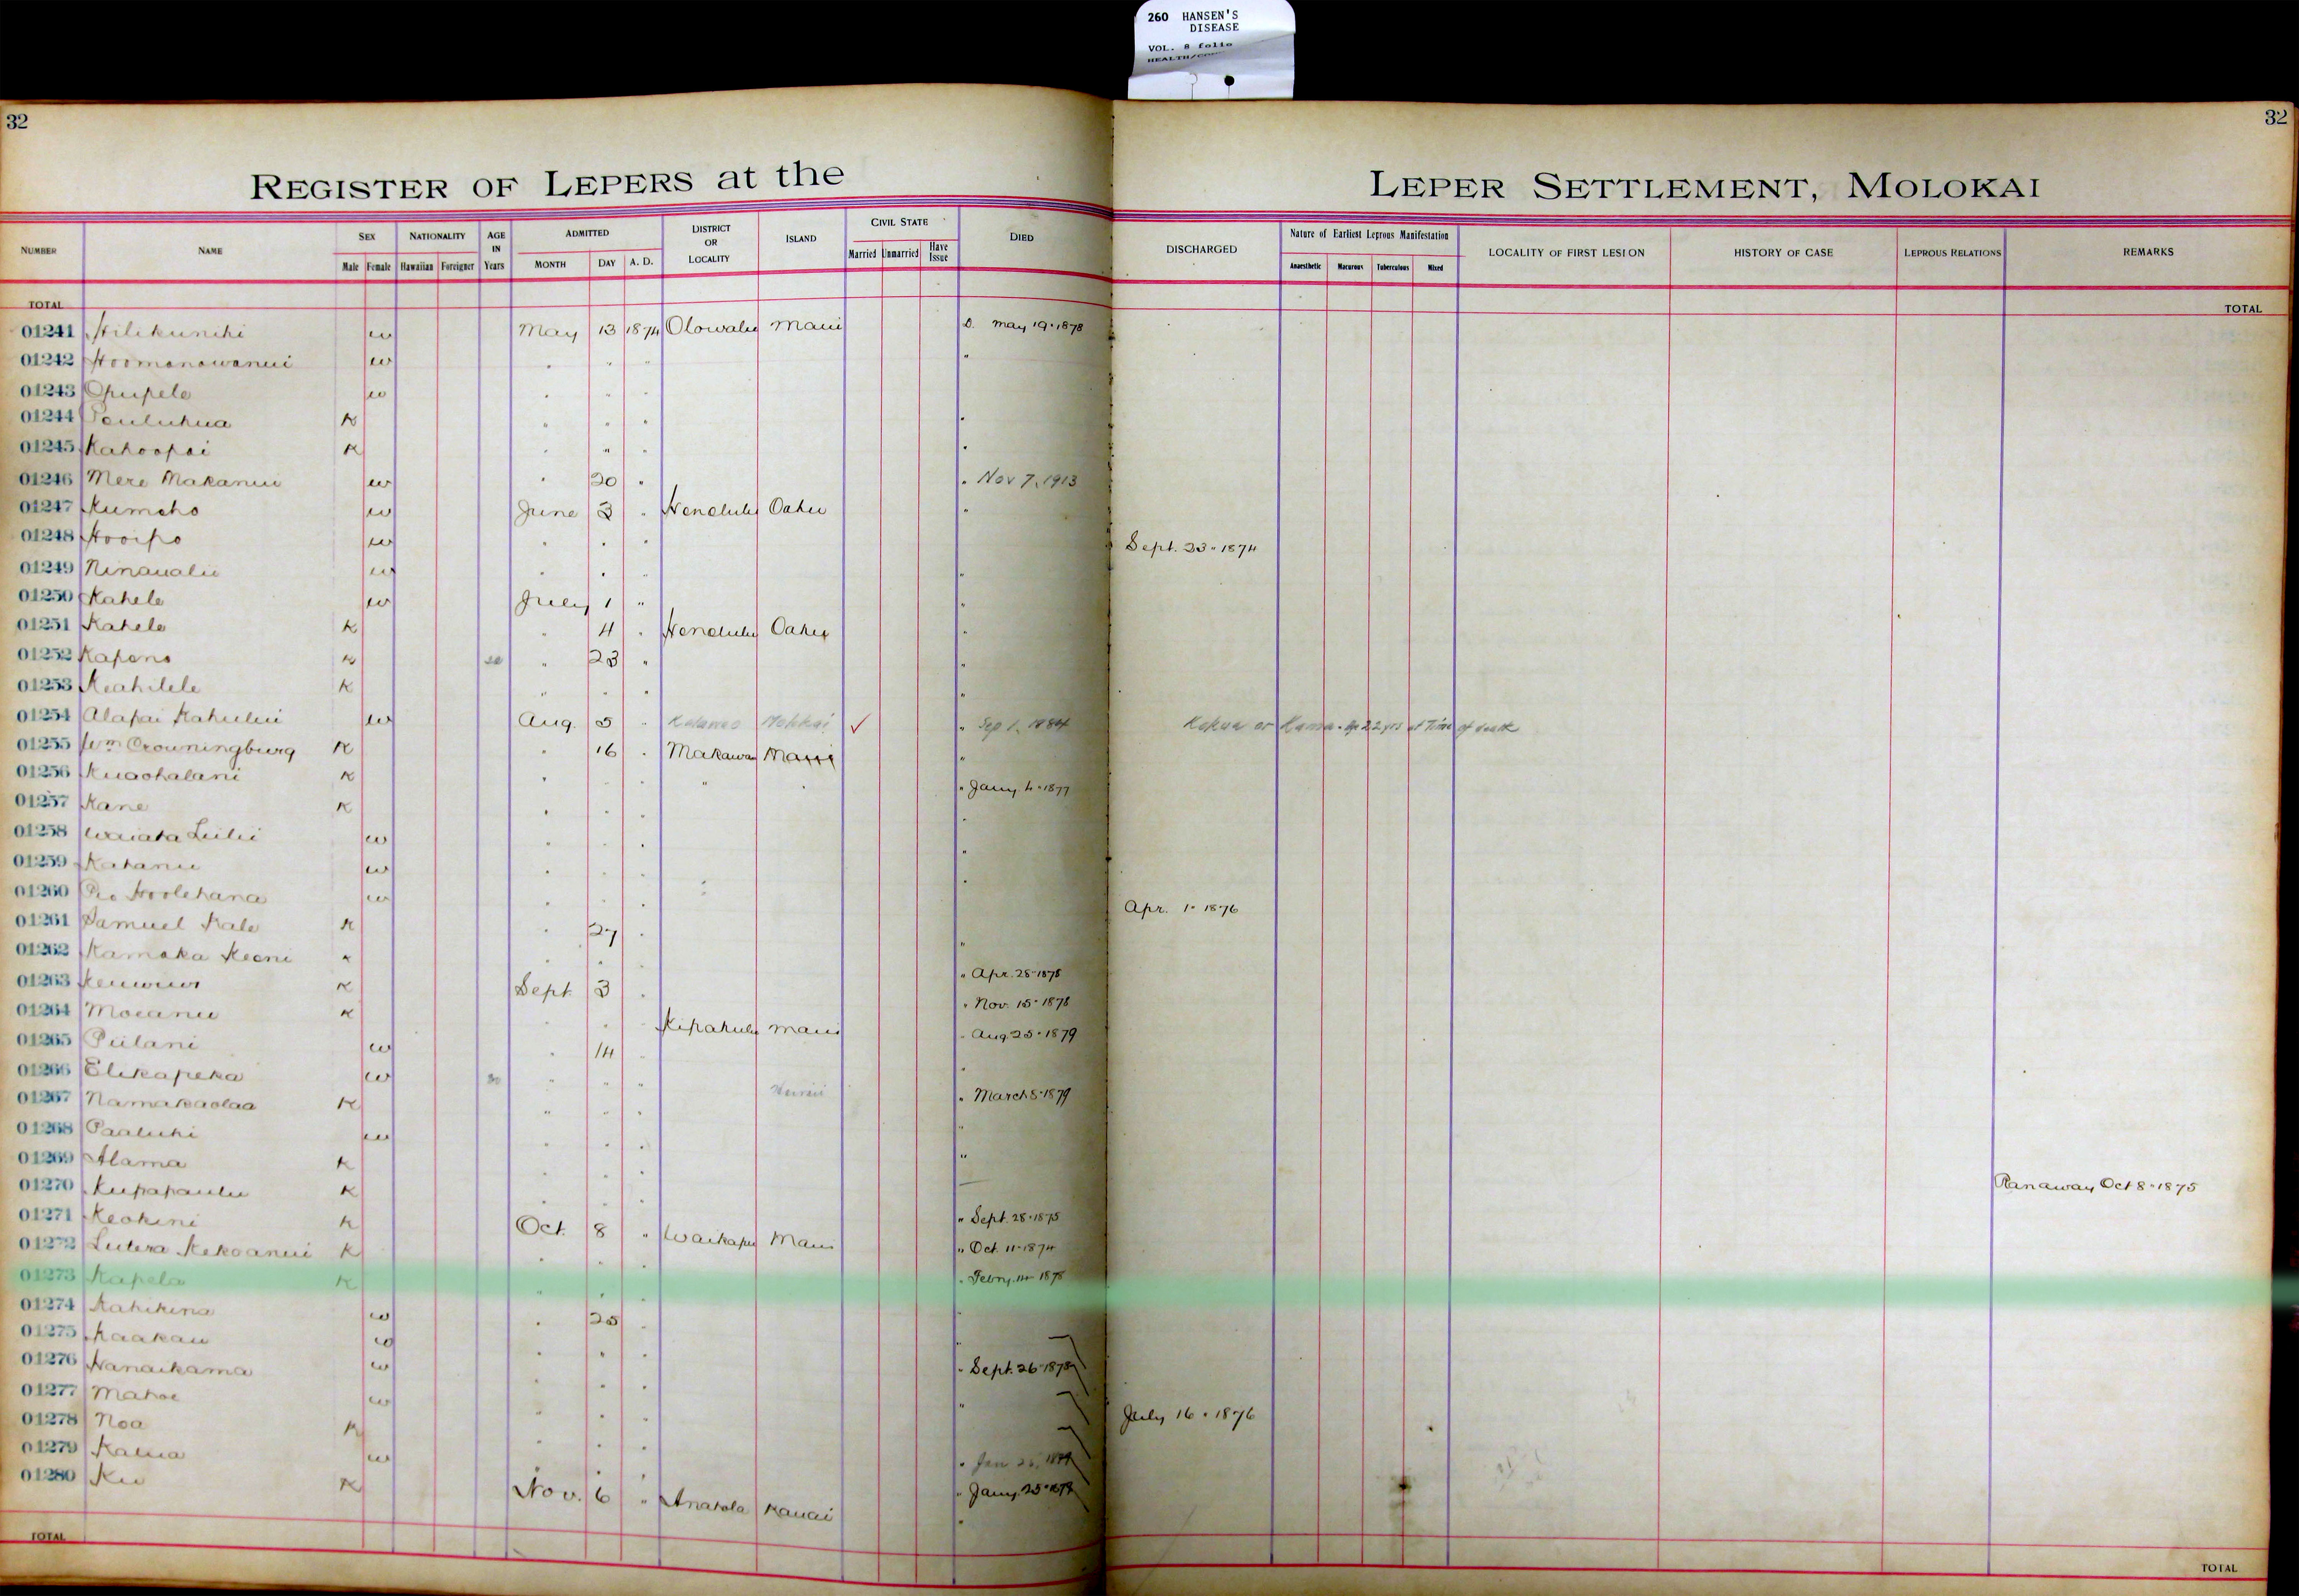 260 HANSEN'S
DISEASE
VOL. 8 folio
32 32
REGISTER OF LEPERS at the LEPER SETTLEMENT, MOLOKAI
NUMBER NAME SEX NATIONALITY AGE IN Years ADMITTED DISTRICT OR LOCALITY ISLAND CIVIL STATE DIED DISCHARGED Nature of Earliest Leprous Manifestation LOCALITY OF FIRST LESION HISTORY OF CASE LEPROUS RELATIONS REMARKS
Male Female Hawaiian Foreigner MONTH DAY A. D. Married Unmarried Have Issue Anaesthetic Macurous Tuberculous Mixed
TOTAL TOTAL
01241 Hilikunihi w May 13 1874 Olowalu Maui D. May 19 - 1878
01242 Hoomanawanui w " " " "
01243 Opupele w " " "
01244 Pauluhua K " " " "
01245 Kahoopai K " " " "
01246 Mere Makanui w " 20 " " Nov 7, 1913
01247 Kumeho w June 3 " Honolulu Oahu "
01248 Hooipo w " " " Sept. 23 - 1874
01249 Ninaualu w " " " "
01250 Kahele w July 1 " "
01251 Kahele K " 4 " Honolulu Oahu "
01252 Kapena K " 23 " "
01253 Keahilele K " " " "
01254 Alapai Kahului w Aug. 5 " Kalawao Molokai ✓ " Sep 1, 1884 Kokua or Kamaa. Age 22 yrs at Time of death
01255 Wm Crowningburg K " 16 " Makawao Maui "
01256 Kuaohalani K " " " " " " Jany 4 - 1877
01257 Kane K " " " "
01258 Waiaka Luilii w " " " "
01259 Kahanu w " " " "
01260 Pio Hoolehana w " " " " Apr. 1 - 1876
01261 Samuel Kale K " 27 " "
01262 Kamaka Keoni K " " " " Apr. 28 - 1878
01263 Keuwius K Sept. 3 " " Nov. 15 - 1878
01264 Moeanu K " " " Kipahulu Maui " Aug 25 - 1879
01265 Piilani w " 14 " "
01266 Elikapeka w 30 " " " Hawaii " March 5 - 1879
01267 Namakaolaa K " " " "
01268 Paaluhi w " " " "
01269 Alama K " " "
01270 Kupapaulu K " " " " Sept. 28 - 1875 Ranaway Oct 8 - 1875
01271 Keokini K Oct. 8 " Waikapu Maui " Oct. 11 - 1874
01272 Lutera Kekoanui K " " " Febry. 14 - 1878
01273 Kapela K " " "
01274 Kahikina w " 25 " "
01275 Kaakau w " " " " Sept. 26 - 1878
01276 Nanaikama w " " " "
01277 Mahoe w " " " July 16 - 1876
01278 Noa K " " " " Jan 26, 1879
01279 Kalua w " " " " Jany. 25 - 1879
01280 Ku K Nov. 6 " Anahola Kauai "
TOTAL TOTAL